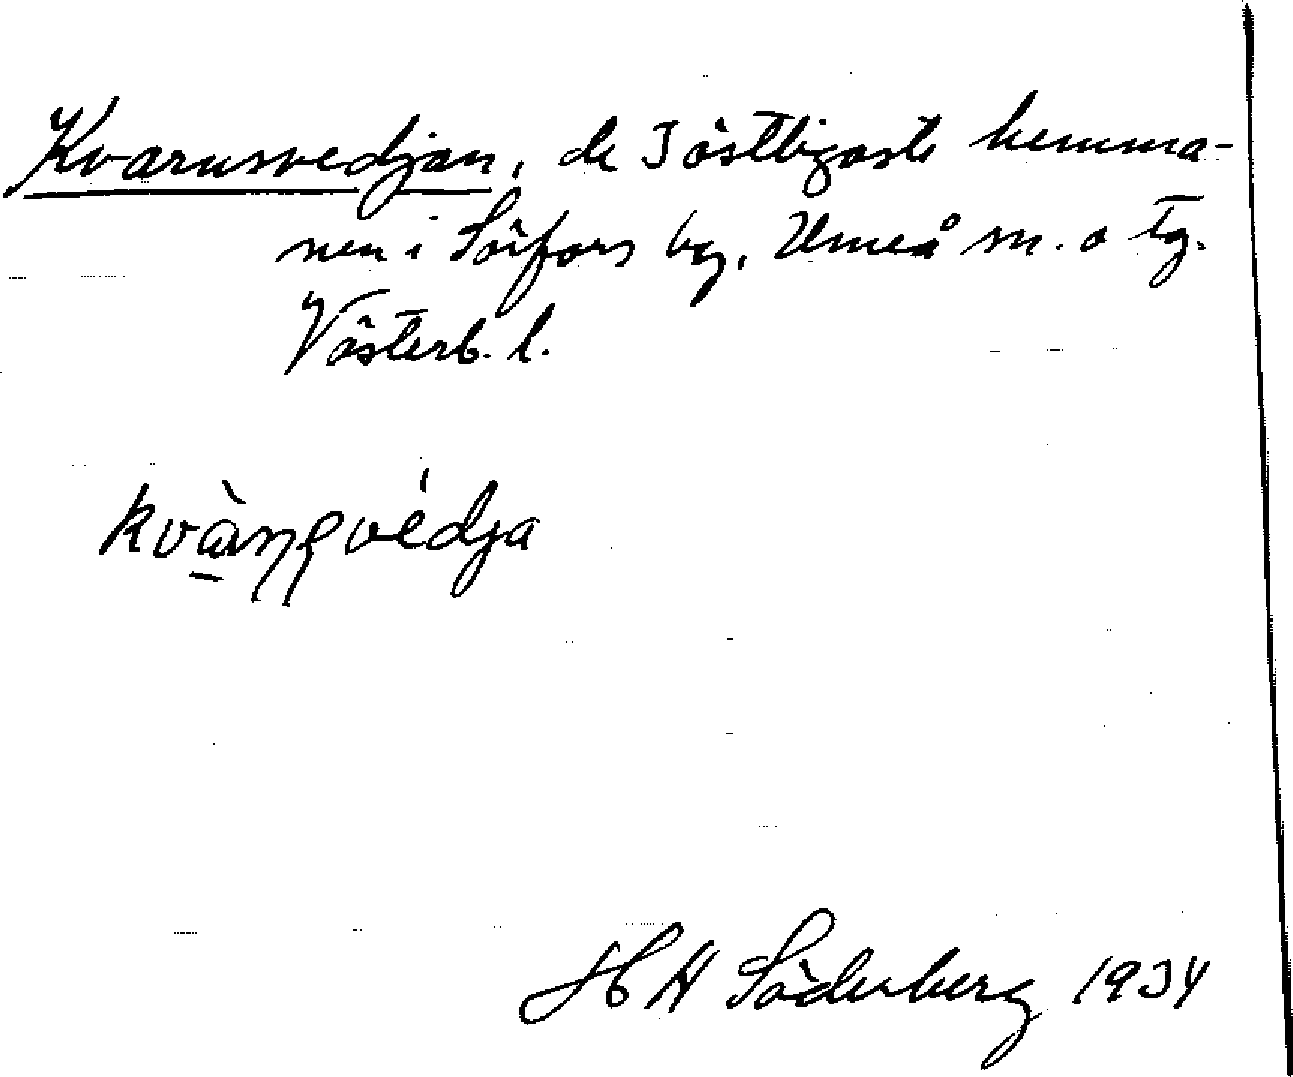 Kvarnsvedjan, de 3 östligaste hemma-
nen i Sörfors by, Umeå sn. o tg.
Västerb. l.
H A Söderberg 1934